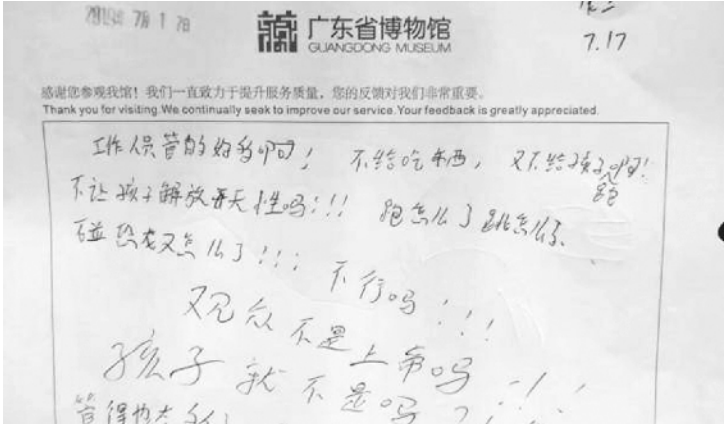 2019年7月17日
周三
7.17
广东省博物馆
GUANGDONG MUSEUM
感谢您参观我馆！我们一直致力于提升服务质量，您的反馈对我们非常重要。
Thank you for visiting.We continually seek to improve our service.Your feedback is greatly appreciated.
工作人员管的好多啊！不给吃东西，又不给孩子跑啊！
不让孩子解放天性吗！！！跑怎么了跳怎么了
碰恐龙又怎么了！！！
不行吗！！！
观众不是上帝吗！！！
孩子就不是吗？！！
管得也太多